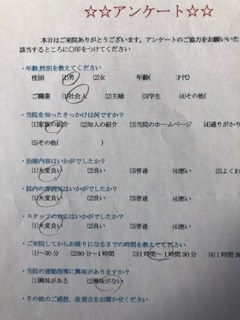 ☆☆アンケート☆☆
本日はご来院ありがとうございます。アンケートのご協力をお願いいた
該当するところに○印をつけてください
・年齢,性別を教えてください
性別 (1)男 (2)女 年齢( 才代)
ご職業 (1)社会人 (2)主婦 (3)学生 (4)その他(
・当院を知ったきっかけは何ですか?
(1)家族の紹介 (2)知人の紹介 (3)当院のホームページ (4)通りがかり
(5)その他( )
・治療内容はいかがでしたか?
(1)大変良い (2)良い (3)普通 (4)悪い (5)
・院内の雰囲気はいかがでしたか?
(1)大変良い (2)良い (3)普通 (4)悪い (5)よくわ
・スタッフの対応はいかがでしたか?
(1)大変良い (2)良い (3)普通 (4)悪い (5)
・ご来院してからお帰りになるまでの時間を教えてください
(1)~30分 (2)30分~1時間 (3)1時間~1時間30分 (4)1時間3
・当院の運動指導に興味がありますか?
(1)興味がある (2)興味がない
・その他のご感想、改善点をお聞かせください